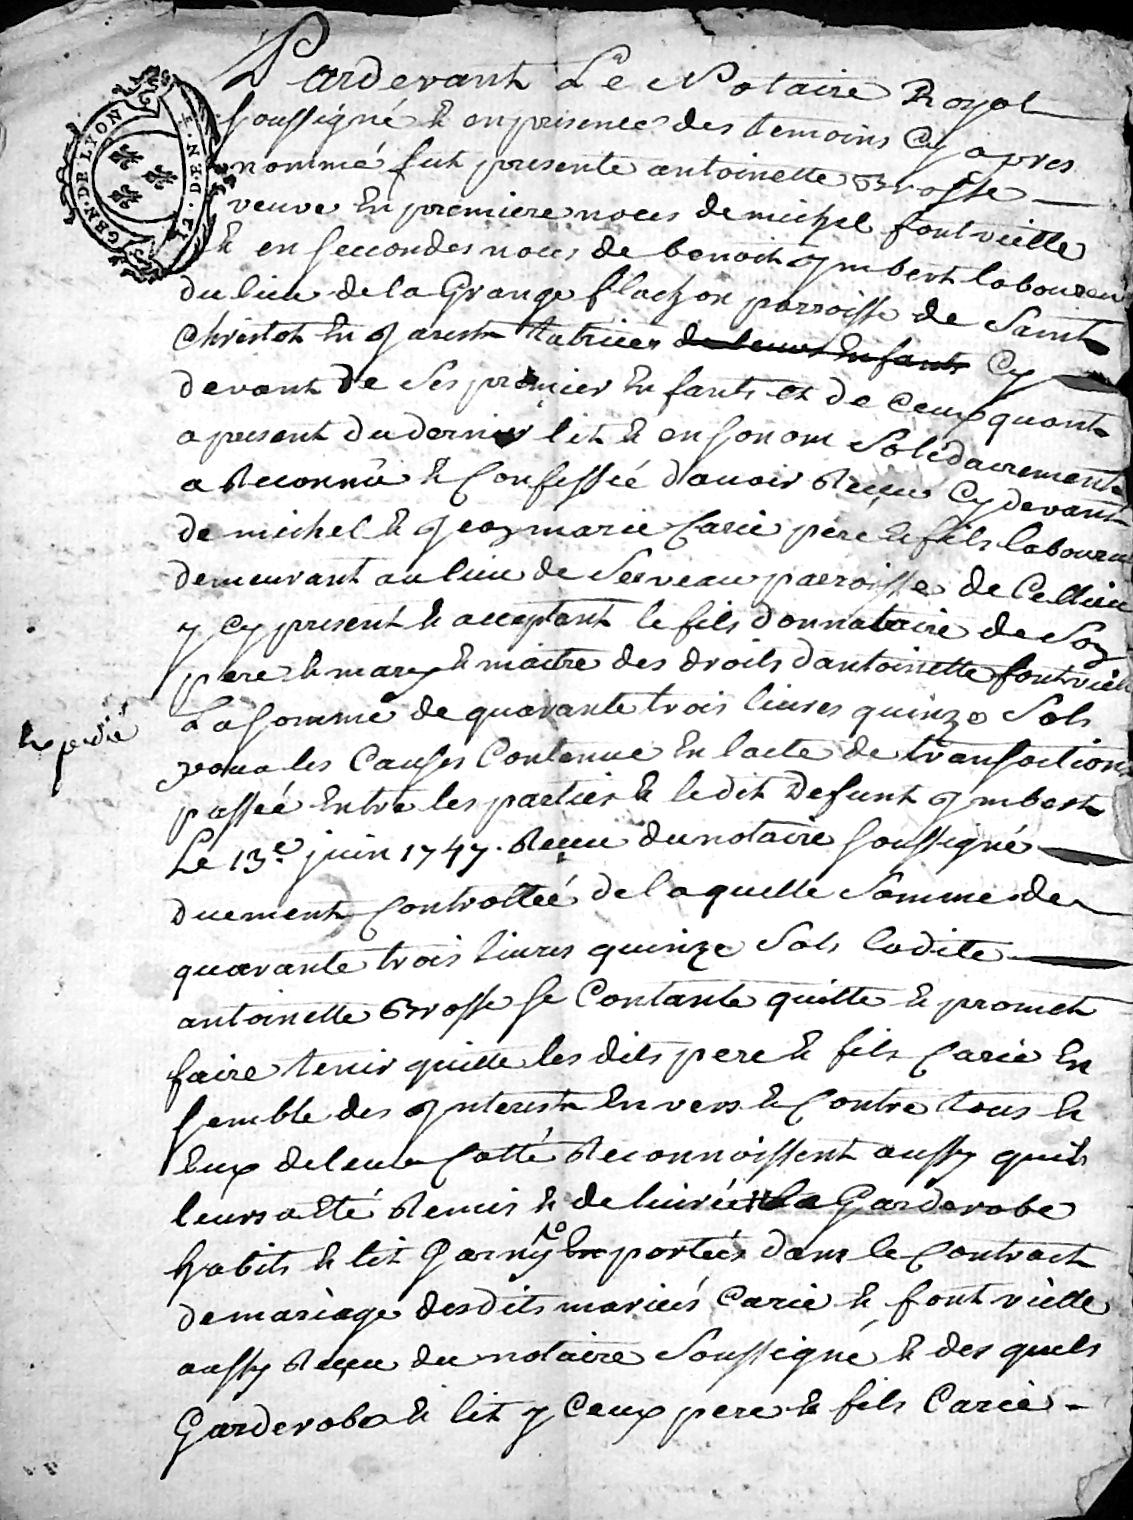 GEN. DE LYON
Pardevant Le Notaire Royal
soussigné & en presence des temoins cy apres
nommé fut presente antoinette Brosse
veuve En premiere noces de michel fontvielle
& en secondes noces de benoit ymbert laboureur
du lieu de la Grange flachon parroisse de Saint
Christot En Jarest tutrices de leurs Enfants cy
devant De Ses premier Enfants et de ceux quant
a present du dernier lit & en son nom Solidairement
a Reconnu & Confessé d'avoir Receu cy devant
de michel & Jean marie Carie pere & fils laboureur
demeurant au lieu de Serveau parroisse de Cellieu
y cy present & acceptant le fils donnataire de Son
pere & mary & maitre des droits d'antoinette fontvielle
La Somme de quarante trois livres quinze Sols
pour les Causes Contenue En lacte de transaction
Expedié
passée Entre les parties & ledit Defunt ymbert
Le 13e juin 1747. Receu du notaire soussigné
Duement Controllée de laquelle Somme de
quarante trois livres quinze Sols ladite
antoinette Brosse se Contante quitte & promet
faire tenir quitte les dits pere & fils Carie En
semble des ynterest Envers & Contre tous &
Eux de leur Cotté Reconnoissent aussy quil
leurs a Eté Remis & delivrée la Garderobe
habits & lit Garny Enportées dans le Contract
de mariage desdits mariés Carie & fontvielle
aussy Receu du notaire Soussigné & des quels
Garderobe & lit yceux pere & fils Carie